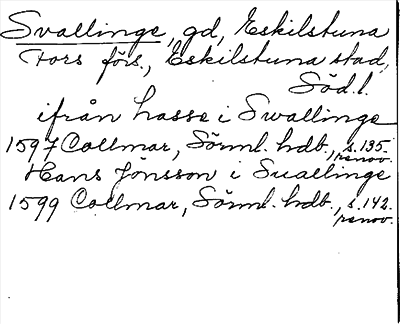 Svallinge, gd, Eskilstuna
Fors förs., Eskilstuna stad,
Söd.l.
ifrån hasse i Swallinge
1597 Collmar, Sörml. hdb., s.135.
renov.
Hans Jönsson i Suallinge
1599 Collmar, Sörml. hdb., s.142.
renov.